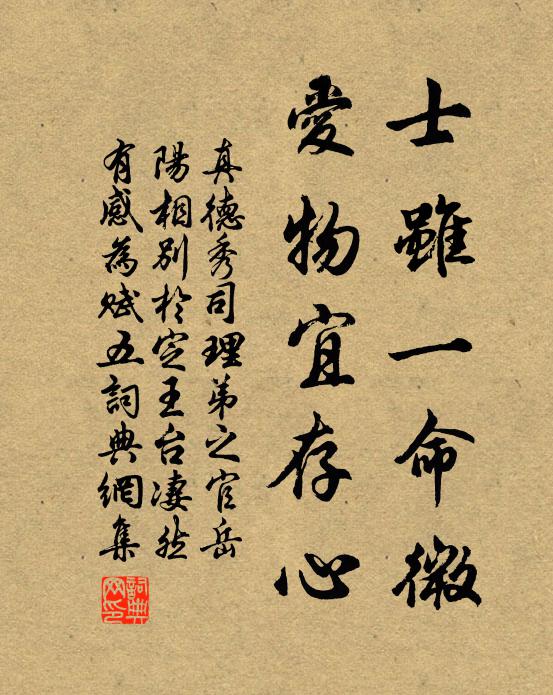 士雖一命微
愛物宜存心
真德秀司理弟之官岳
陽相別於定王台凄然
有感為賦五詞典網集
詞典网印